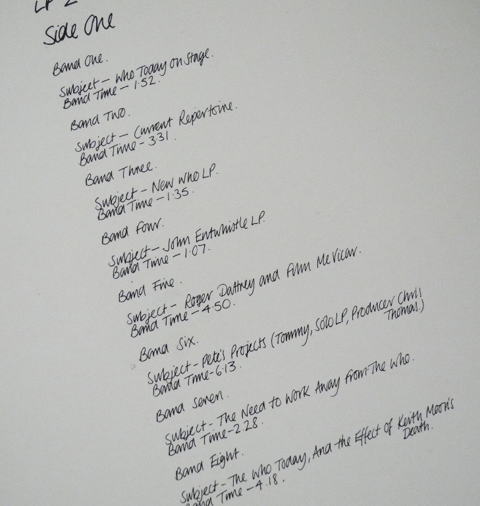 LP 2
Side One
Band One.
Subject - Who Today on Stage.
Band Time - 1.52.
Band Two.
Subject - Current Repertoire.
Band Time - 3.31.
Band Three.
Subject - New Who LP.
Band Time - 1.35.
Band Four.
Subject - John Entwhistle LP.
Band Time - 1.07.
Band Five.
Subject - Roger Daltrey and Film McVicar.
Band Time - 4.50.
Band Six.
Subject - Pete's Projects (Tommy, Solo LP, Producer Chris
Thomas.)
Band Time - 6.13.
Band Seven.
Subject - The Need to Work Away From The Who.
Band Time - 2.28.
Band Eight.
Subject - The Who Today, And the Effect of Keith Moon's
Death.
Band Time - 4.18.